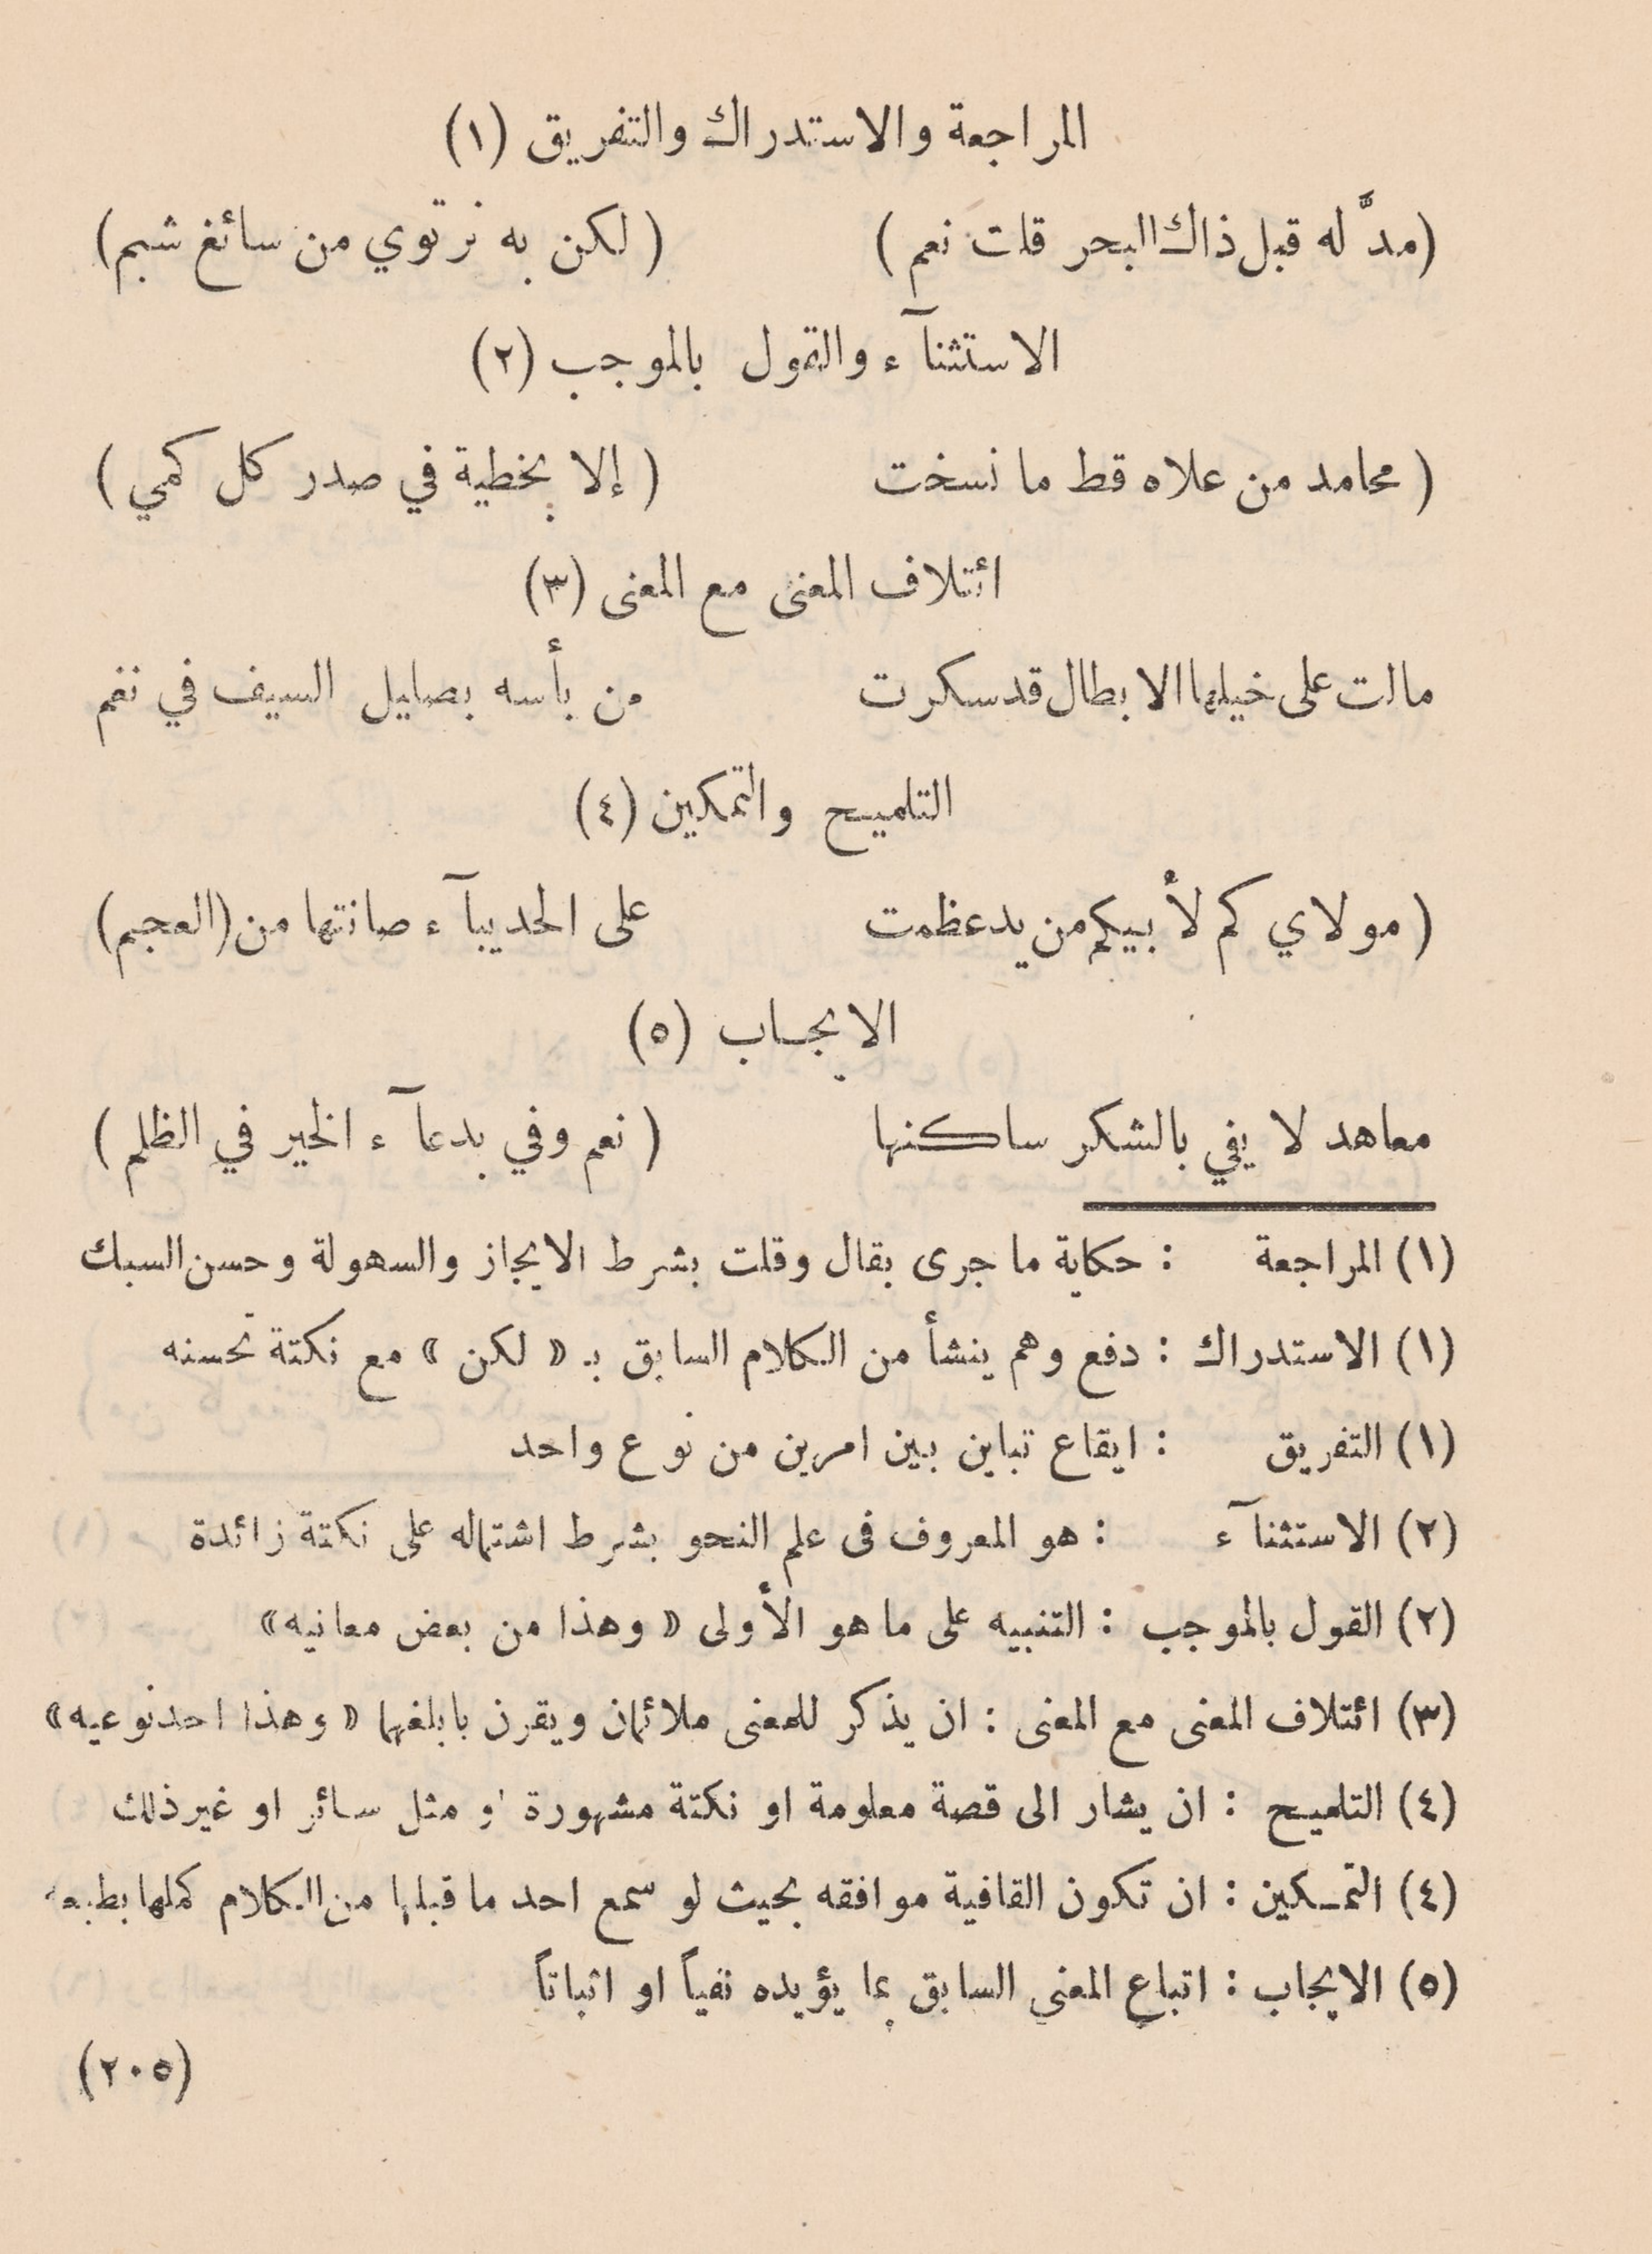 المراجعة والاستدراك والتفريق (١)
(مدَّ له قبل ذاك البحر قلت نعم) (لكن به نرتوي من سائغ شبم)
الاستثنآء والقول بالموجب (٢)
(محامد من علاه قط ما نسخت (إلا بخطية في صدر كل كمي)
ائتلاف المعنى مع المعنى (٣)
مالت على خيلها الابطال قد سكرت من بأسه بصليل السيف في نغم
التلميح والتمكين (٤)
(مولاي كم لأبيكم من يد عظمت على الحديبآء صانتها من (العجم)
الايجاب (٥)
معاهد لا يفي بالشكر ساكنها (نعم وفي بدعآء الخير في الظلم)
(١) المراجعة : حكاية ما جرى بقال وقلت بشرط الايجاز والسهولة وحسن السبك
(١) الاستدراك : دفع وهم ينشأ من الكلام السابق بـ « لكن » مع نكتة تحسنه
(١) التفريق : ايقاع تباين بين امرين من نوع واحد
(٢) الاستثنآء : هو المعروف في علم النحو بشرط اشتماله على نكتة زائدة
(٢) القول بالموجب : التنبيه على ما هو الأولى « وهذا من بعض معانيه »
(٣) ائتلاف المعنى مع المعنى : ان يذكر للمعنى ملائمان ويقرن بابلغهما « وهذا احد نوعيه »
(٤) التلميح : ان يشار الى قصة معلومة او نكتة مشهورة او مثل سائر او غير ذلك
(٤) التمكين : ان تكون القافية موافقه بحيث لو سمع احد ما قبلها من الكلام كملها بطبعه
(٥) الايجاب : اتباع المعنى السابق بما يؤيده نفياً او اثباتاً
(٢٠٥)